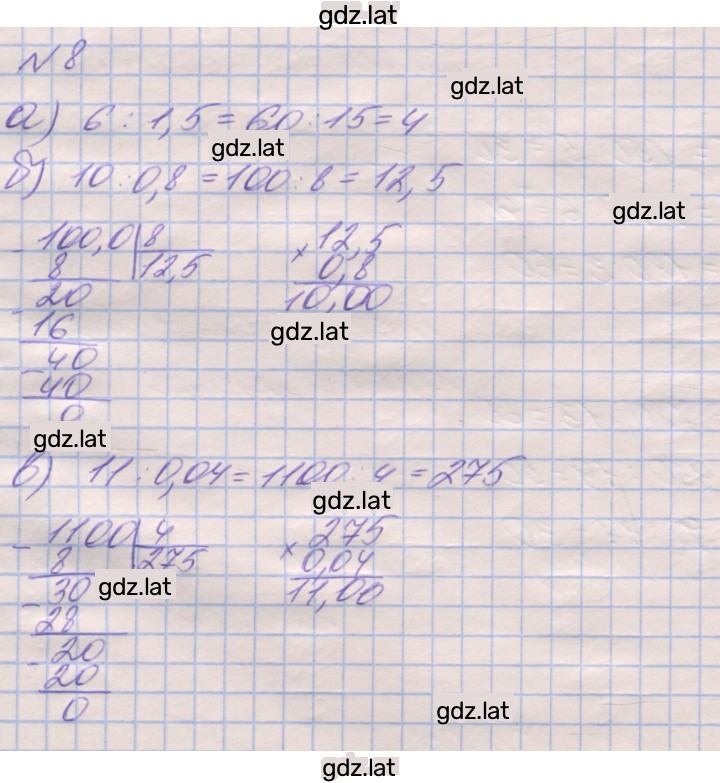 gdz.lat
№8
gdz.lat
а) 6 : 1,5 = 60 : 15 = 4
gdz.lat
б) 10 : 0,8 = 100 : 8 = 12,5
gdz.lat
- 100,0 | 8
8 | 12,5
- 20
16
- 40
40
0
× 12,5
0,8
10,00
gdz.lat
gdz.lat
в) 11 : 0,04 = 1100 : 4 = 275
gdz.lat
- 1100 | 4
8 | 275
- 30
28
- 20
20
0
× 275
0,04
11,00
gdz.lat
gdz.lat
gdz.lat